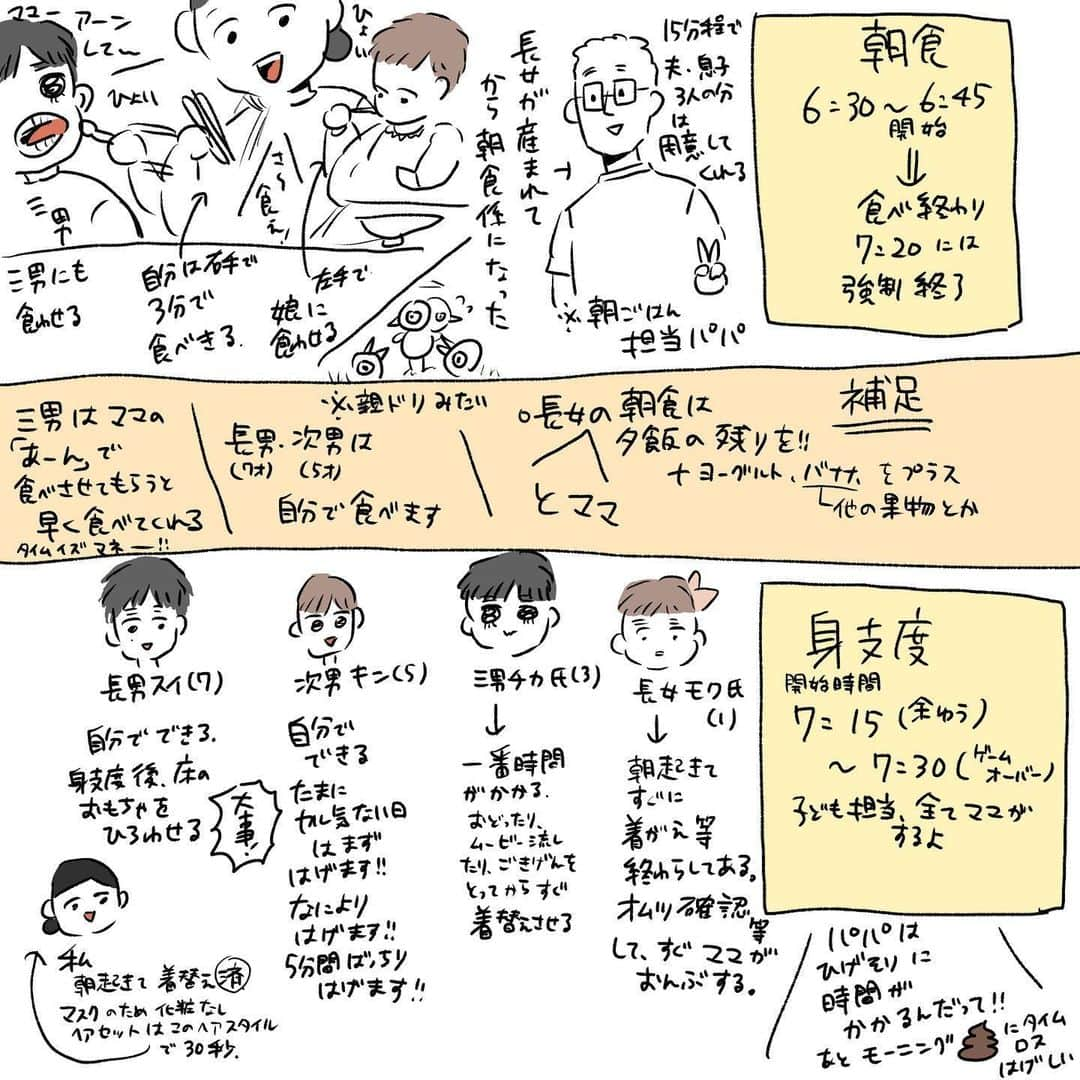 朝食
6:30〜6:45
開始
食べ終わり
7:20には
強制終了
15分程で
夫、息子
3人の分
は
用意して
くれる
※朝ごはん
担当パパ
長女が産まれて
から朝食係になった
ひょい
ママー
アーン
してー
ひょい
さら
食え!
三男
三男にも
食わせる
自分は右手で
3分で
食べきる.
左手で
娘に
食わせる
※親ドリみたい
補足
○長女の朝食は
夕飯の残りを!!
+ヨーグルト、バナナ、をプラス
他の果物とか
とママ
長男.次男は
(7才) (5才)
自分で食べます
三男はママの
「あーん」で
食べさせてもらうと
早く食べてくれる
タイムイズマネー!!
身支度
開始時間
7:15(余ゆう)
〜7:30(ゲーム
オーバー)
子ども担当、全てママが
するよ
パパは
ひげそりに
時間が
かかるんだって!!
あとモーニング💩にタイム
ロス
はげしい
長女モク氏
(1)
朝起きて
すぐに
着がえ等
終わらしてある。
オムツ確認等
して、すぐママが
おんぶする。
三男チカ氏(3)
一番時間
がかかる.
おどったり、
ムービー流し
たり、ごきげんを
とってからすぐ
着替えさせる
次男キン(5)
自分で
できる
たまに
ヤル気ない日
はまず
はげます!!
なにより
はげます!!
5分間ばっちり
はげます!!
長男スイ(7)
自分でできる.
身支度後、床の
おもちゃを
ひろわせる
大事!
私
朝起きて着替え済
マスクのため化粧なし
ヘアセットはこのヘアスタイル
で30秒.